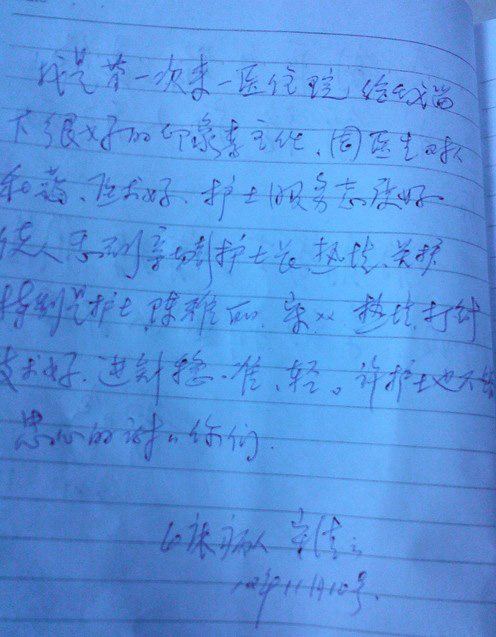 我是第一次来一医住院，给我留
下很好的印象李主任、周医生对人
和蔼、医术好、护士服务态度好
使人感到亲切护士长热情、关护
特别是护士陈雅丽、宋×× 热情打针
技术好、进针稳、准、轻。许护士也不错
忠心的谢谢你们
6床病人
12年11月10号.